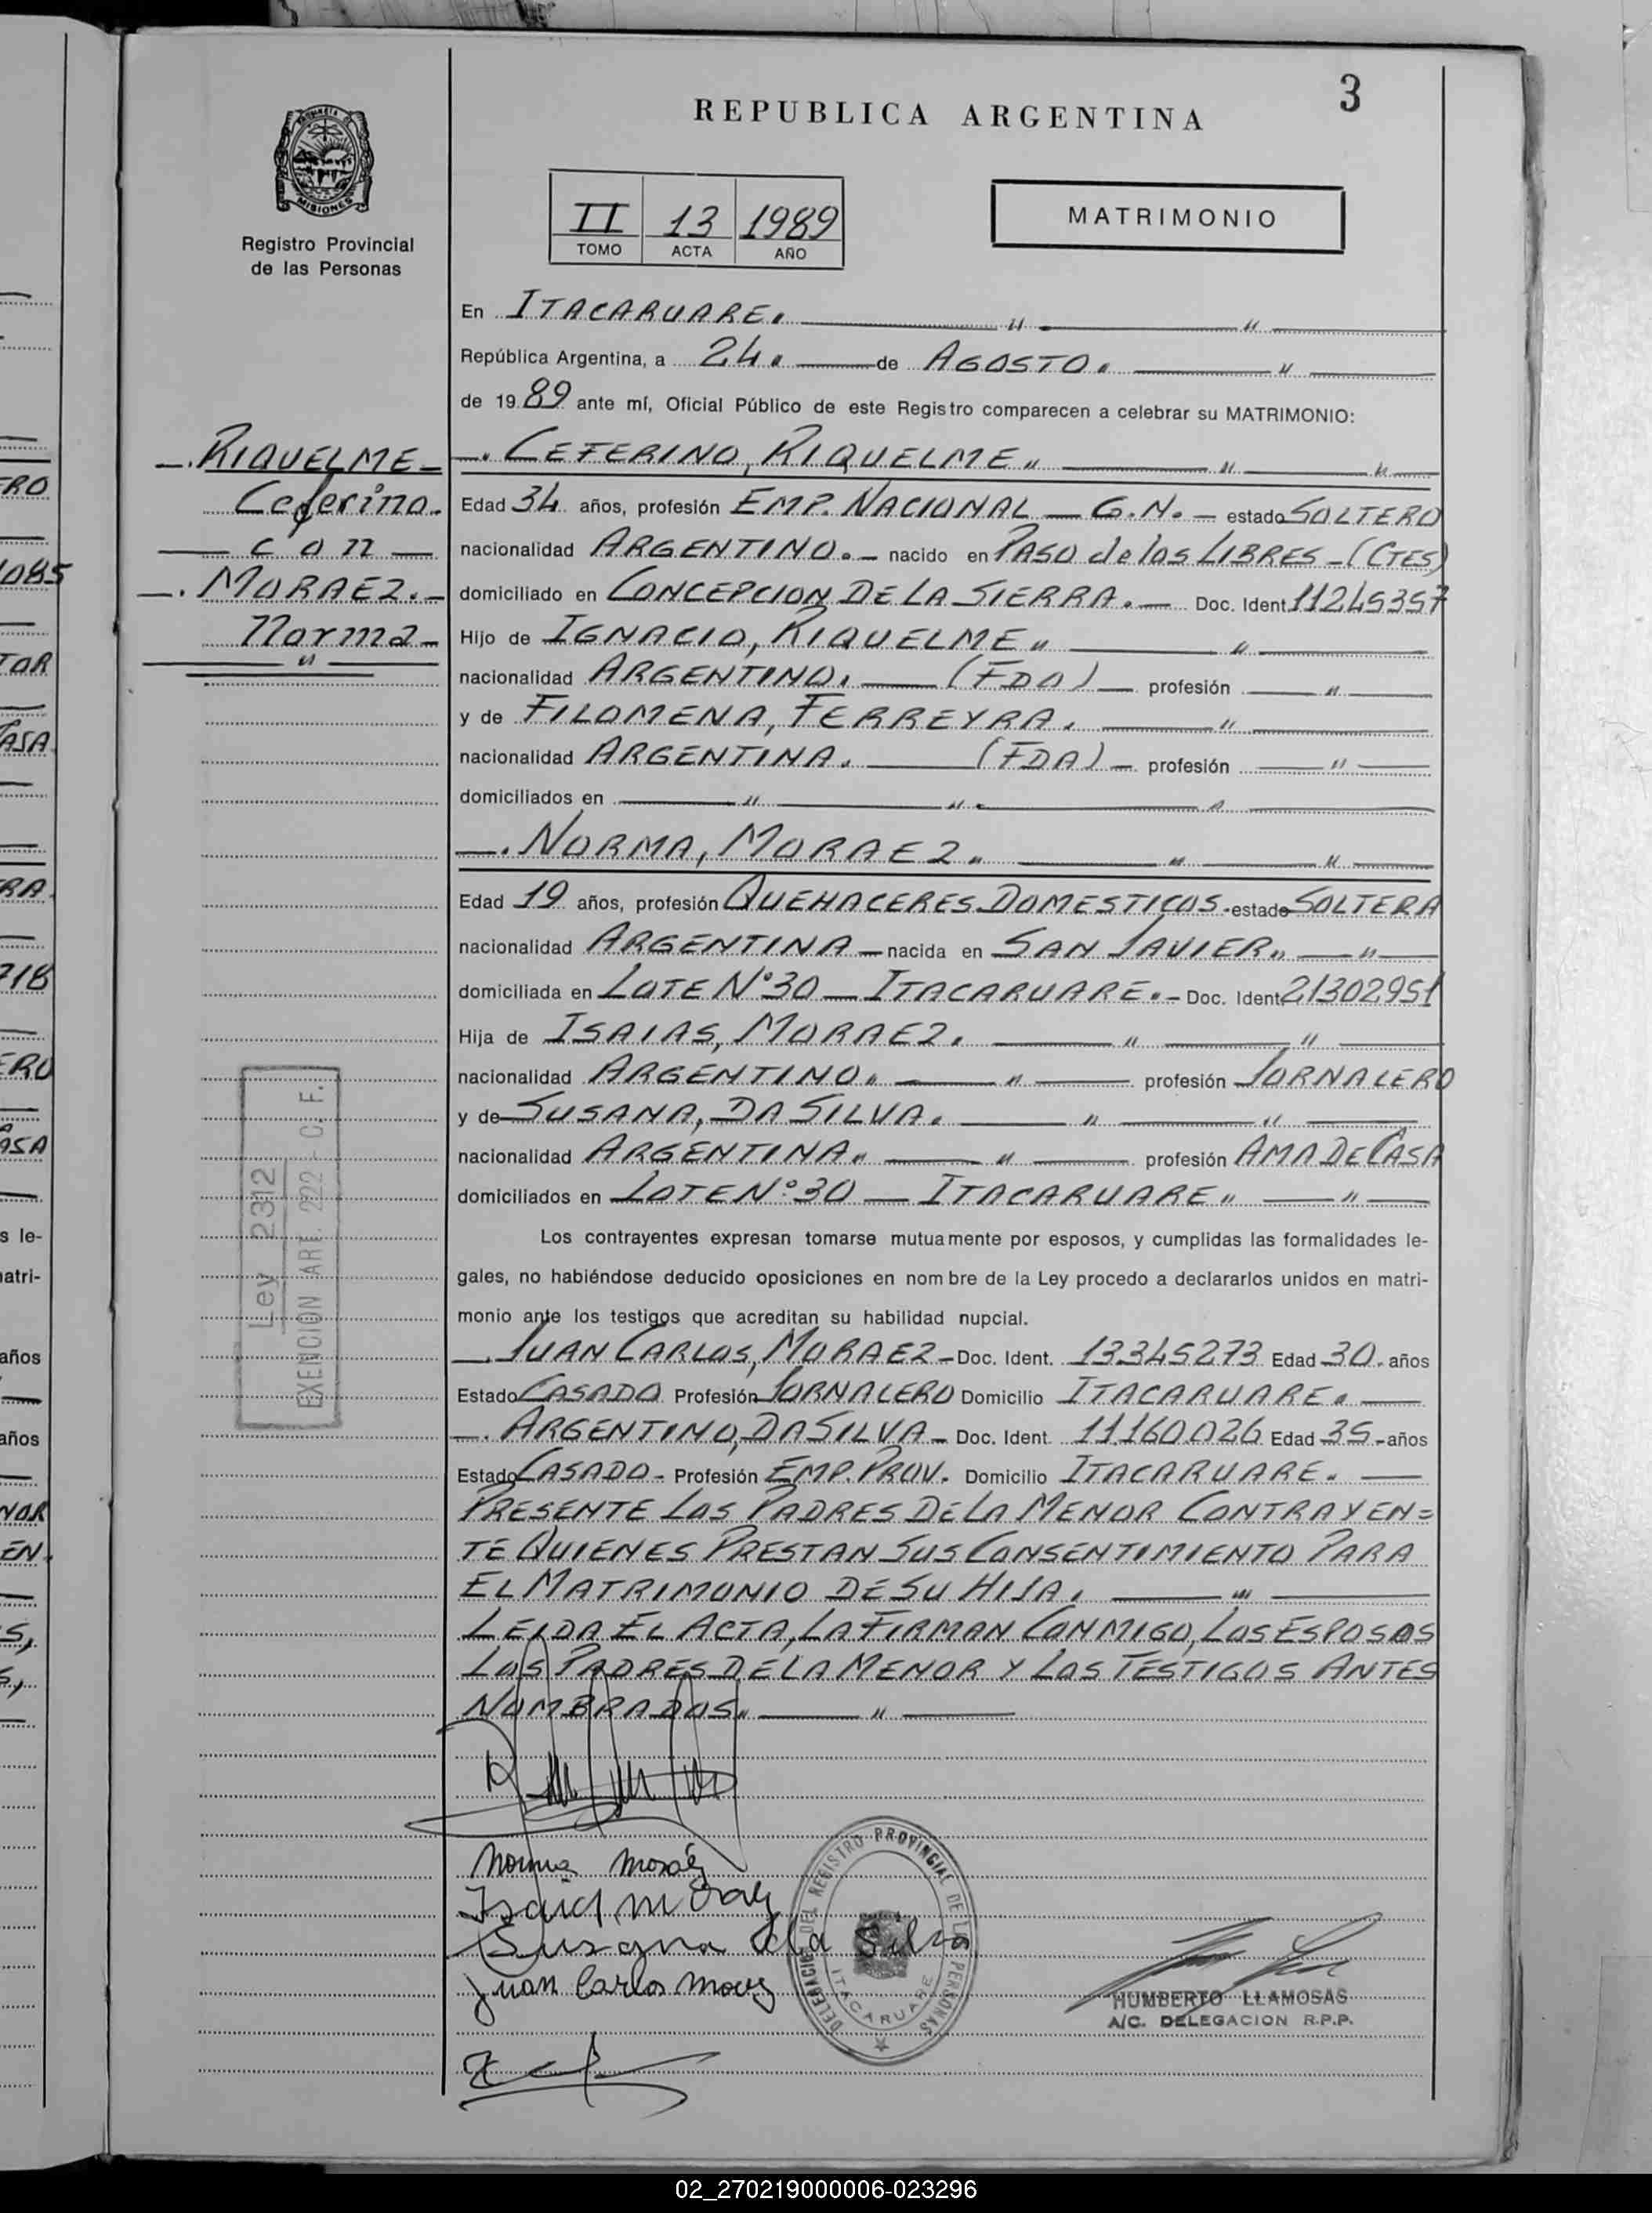 3
REPUBLICA ARGENTINA
MISIONES
Registro Provincial
de las Personas
II 13 1989
TOMO ACTA AÑO
MATRIMONIO
En ITACARUARE.
República Argentina, a 24. de AGOSTO.
de 1989 ante mí, Oficial Público de este Registro comparecen a celebrar su MATRIMONIO:
RIQUELME
Ceferino.
con
MORAEZ.
Norma
CEFERINO, RIQUELME
Edad 34 años, profesión EMP. NACIONAL - G.N. - estado SOLTERO
nacionalidad ARGENTINO. - nacido en PASO de los LIBRES - (CTES)
domiciliado en CONCEPCION DE LA SIERRA. - Doc. Ident 11245357
Hijo de IGNACIO, RIQUELME
nacionalidad ARGENTINO. (FDO) profesión
y de FILOMENA, FERREYRA.
nacionalidad ARGENTINA. (FDA) - profesión
domiciliados en
NORMA, MORAEZ
Edad 19 años, profesión QUEHACERES DOMESTICOS. estado SOLTERA
nacionalidad ARGENTINA - nacida en SAN JAVIER
domiciliada en LOTE N°30 - ITACARUARE. - Doc. Ident 21302951
Hija de ISAIAS, MORAEZ.
nacionalidad ARGENTINO. profesión JORNALERO
y de SUSANA, DA SILVA.
nacionalidad ARGENTINA. profesión AMA DE CASA
domiciliados en LOTE N°30 - ITACARUARE
Los contrayentes expresan tomarse mutuamente por esposos, y cumplidas las formalidades le-
gales, no habiéndose deducido oposiciones en nombre de la Ley procedo a declararlos unidos en matri-
monio ante los testigos que acreditan su habilidad nupcial.
JUAN CARLOS, MORAEZ - Doc. Ident. 13345273 Edad 30. años
Estado CASADO Profesión JORNALERO Domicilio ITACARUARE.
ARGENTINO, DA SILVA - Doc. Ident. 11160026 Edad 35 - años
Estado CASADO - Profesión EMP. PROV. Domicilio ITACARUARE.
PRESENTE LOS PADRES DE LA MENOR CONTRAYEN=
TE QUIENES PRESTAN SUS CONSENTIMIENTO PARA
EL MATRIMONIO DE SU HIJA.
LEIDA EL ACTA, LA FIRMAN CONMIGO, LOS ESPOSOS
LOS PADRES DE LA MENOR Y LOS TESTIGOS ANTES
NOMBRADOS
Ley 2312
EXENCION ART. 222 - C.F.
Norma Moraez
Susana da Silva
Juan Carlos Moraez
DELEGACION DEL REGISTRO PROVINCIAL DE LAS PERSONAS
ITACARUARE
HUMBERTO LLAMOSAS
A/C. DELEGACION R.P.P.
RO
1085
TOR
CASA
RA
718
ERO
ASA
s le-
atri-
años
años
NOR
EN.
S,
S,
02_270219000006-023296